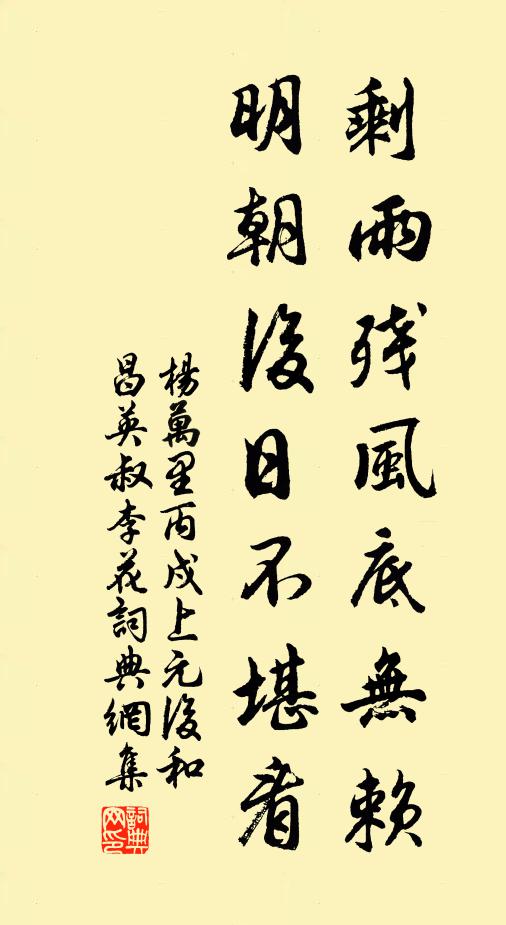 剩雨残風底無賴
明朝後日不堪看
楊萬里丙戌上元後和
昌英叔李花詞典網集
詞典网印